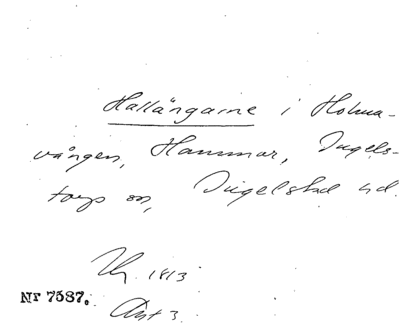 Hallängarne i Holma-
vången, Hammar, Ingels-
torps sn, Ingelstad hd.
1813
Nr 7587. Akt 3